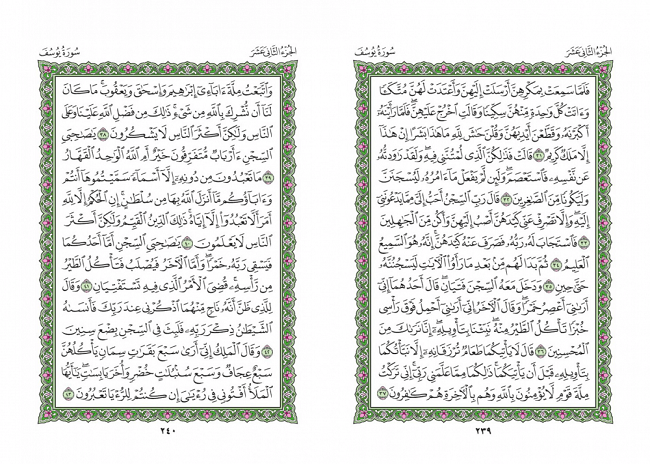 سُورَةُ يُوسُفَ
الجُزْءُ الثَّانِي عَشَرَ
فَلَمَّا سَمِعَتْ بِمَكْرِهِنَّ أَرْسَلَتْ إِلَيْهِنَّ وَأَعْتَدَتْ لَهُنَّ مُتَّكَـٔٗا
وَءَاتَتْ كُلَّ وَٰحِدَةٍ مِّنْهُنَّ سِكِّينًا وَقَالَتِ ٱخْرُجْ عَلَيْهِنَّۖ فَلَمَّا رَأَيْنَهُۥٓ
أَكْبَرْنَهُۥ وَقَطَّعْنَ أَيْدِيَهُنَّ وَقُلْنَ حَٰشَ لِلَّهِ مَا هَٰذَا بَشَرًا إِنْ هَٰذَآ
إِلَّا مَلَكٌ كَرِيمٌ ٣١ قَالَتْ فَذَٰلِكُنَّ ٱلَّذِي لُمْتُنَّنِي فِيهِۖ وَلَقَدْ رَٰوَدتُّهُۥ
عَن نَّفْسِهِۦ فَٱسْتَعْصَمَۖ وَلَئِن لَّمْ يَفْعَلْ مَآ ءَامُرُهُۥ لَيُسْجَنَنَّ
وَلَيَكُونًا مِّنَ ٱلصَّٰغِرِينَ ٣٢ قَالَ رَبِّ ٱلسِّجْنُ أَحَبُّ إِلَيَّ مِمَّا يَدْعُونَنِيٓ
إِلَيْهِۖ وَإِلَّا تَصْرِفْ عَنِّي كَيْدَهُنَّ أَصْبُ إِلَيْهِنَّ وَأَكُن مِّنَ ٱلْجَٰهِلِينَ
٣٣ فَٱسْتَجَابَ لَهُۥ رَبُّهُۥ فَصَرَفَ عَنْهُ كَيْدَهُنَّۚ إِنَّهُۥ هُوَ ٱلسَّمِيعُ
ٱلْعَلِيمُ ٣٤ ثُمَّ بَدَا لَهُم مِّنۢ بَعْدِ مَا رَأَوُاْ ٱلْأٓيَٰتِ لَيَسْجُنُنَّهُۥ
حَتَّىٰ حِينٍ ٣٥ وَدَخَلَ مَعَهُ ٱلسِّجْنَ فَتَيَانِۖ قَالَ أَحَدُهُمَآ إِنِّيٓ
أَرَىٰنِيٓ أَعْصِرُ خَمْرًاۖ وَقَالَ ٱلْأٓخَرُ إِنِّيٓ أَرَىٰنِيٓ أَحْمِلُ فَوْقَ رَأْسِي
خُبْزًا تَأْكُلُ ٱلطَّيْرُ مِنْهُۖ نَبِّئْنَا بِتَأْوِيلِهِۦٓۖ إِنَّا نَرَىٰكَ مِنَ
ٱلْمُحْسِنِينَ ٣٦ قَالَ لَا يَأْتِيكُمَا طَعَامٌ تُرْزَقَانِهِۦٓ إِلَّا نَبَّأْتُكُمَا
بِتَأْوِيلِهِۦ قَبْلَ أَن يَأْتِيَكُمَاۚ ذَٰلِكُمَا مِمَّا عَلَّمَنِي رَبِّيٓۚ إِنِّي تَرَكْتُ
مِلَّةَ قَوْمٍ لَّا يُؤْمِنُونَ بِٱللَّهِ وَهُم بِٱلْأٓخِرَةِ هُمْ كَٰفِرُونَ ٣٧
٢٣٩
سُورَةُ يُوسُفَ
الجُزْءُ الثَّانِي عَشَرَ
وَٱتَّبَعْتُ مِلَّةَ ءَابَآءِيٓ إِبْرَٰهِيمَ وَإِسْحَٰقَ وَيَعْقُوبَۚ مَا كَانَ
لَنَآ أَن نُّشْرِكَ بِٱللَّهِ مِن شَيْءٍۚ ذَٰلِكَ مِن فَضْلِ ٱللَّهِ عَلَيْنَا وَعَلَى
ٱلنَّاسِ وَلَٰكِنَّ أَكْثَرَ ٱلنَّاسِ لَا يَشْكُرُونَ ٣٨ يَٰصَىٰحِبَيِ
ٱلسِّجْنِ ءَأَرْبَابٌ مُّتَفَرِّقُونَ خَيْرٌ أَمِ ٱللَّهُ ٱلْوَٰحِدُ ٱلْقَهَّارُ
٣٩ مَا تَعْبُدُونَ مِن دُونِهِۦٓ إِلَّآ أَسْمَآءً سَمَّيْتُمُوهَآ أَنتُمْ
وَءَابَآؤُكُم مَّآ أَنزَلَ ٱللَّهُ بِهَا مِن سُلْطَٰنٍۚ إِنِ ٱلْحُكْمُ إِلَّا لِلَّهِ
أَمَرَ أَلَّا تَعْبُدُوٓاْ إِلَّآ إِيَّاهُۚ ذَٰلِكَ ٱلدِّينُ ٱلْقَيِّمُ وَلَٰكِنَّ أَكْثَرَ
ٱلنَّاسِ لَا يَعْلَمُونَ ٤٠ يَٰصَىٰحِبَيِ ٱلسِّجْنِ أَمَّآ أَحَدُكُمَا
فَيَسْقِي رَبَّهُۥ خَمْرًاۖ وَأَمَّا ٱلْأٓخَرُ فَيُصْلَبُ فَتَأْكُلُ ٱلطَّيْرُ
مِن رَّأْسِهِۦۚ قُضِيَ ٱلْأَمْرُ ٱلَّذِي فِيهِ تَسْتَفْتِيَانِ ٤١ وَقَالَ
لِلَّذِي ظَنَّ أَنَّهُۥ نَاجٍ مِّنْهُمَا ٱذْكُرْنِي عِندَ رَبِّكَ فَأَنسَىٰهُ
ٱلشَّيْطَٰنُ ذِكْرَ رَبِّهِۦ فَلَبِثَ فِي ٱلسِّجْنِ بِضْعَ سِنِينَ
٤٢ وَقَالَ ٱلْمَلِكُ إِنِّيٓ أَرَىٰ سَبْعَ بَقَرَٰتٍ سِمَانٍ يَأْكُلُهُنَّ
سَبْعٌ عِجَافٌ وَسَبْعَ سُنۢبُلَٰتٍ خُضْرٍ وَأُخَرَ يَابِسَٰتٍۖ يَٰٓأَيُّهَا
ٱلْمَلَأُ أَفْتُونِي فِي رُءْيَٰيَ إِن كُنتُمْ لِلرُّءْيَا تَعْبُرُونَ ٤٣
٢٤٠